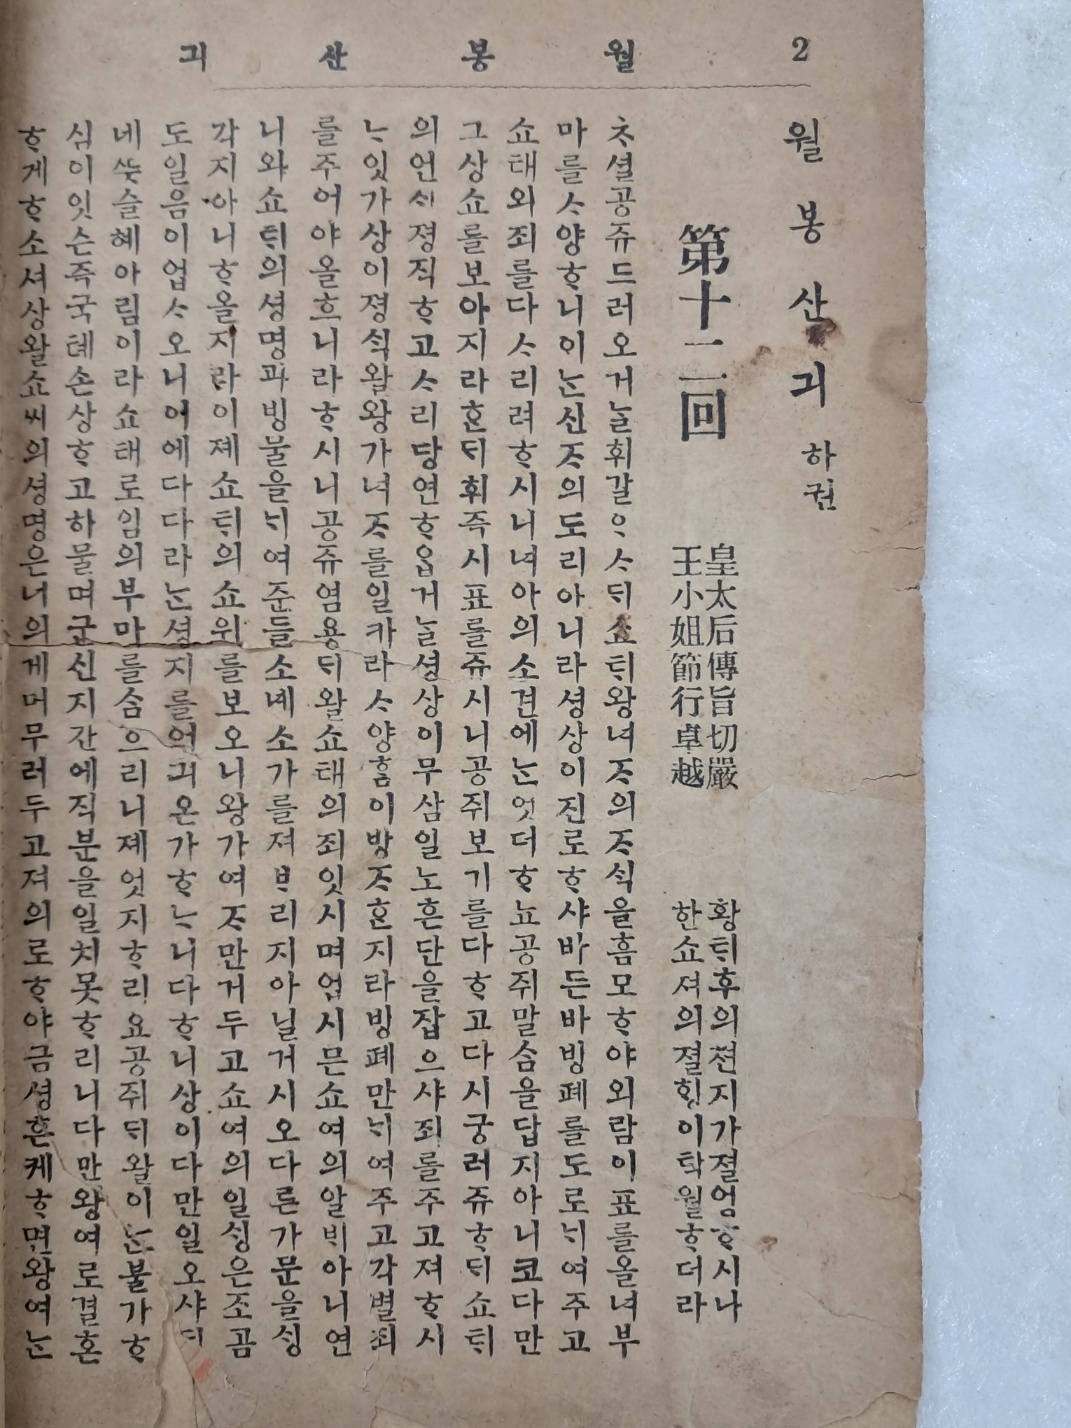 2 월봉산긔
월봉산긔 하권
第十二回
皇太后傳旨切嚴
王小姐節行卓越
황ᄐᆡ후의젼지가졀엄ᄒᆞ시나
한쇼져의졀ᄒᆡᆼ이탁월ᄒᆞ더라
ᄎᆞ셜공쥬드러오거ᄂᆞᆯ휘갈ᄋᆞᄉᆞᄃᆡ쇼ᄐᆡ왕녀ᄌᆞ의ᄌᆞ식을흠모ᄒᆞ야외람이표를올녀부
마를ᄉᆞ양ᄒᆞ니이ᄂᆞᆫ신ᄌᆞ의도리아니라셩상이진로ᄒᆞ샤바든바빙폐를도로ᄂᆡ여주고
쇼태외죄를다ᄉᆞ리려ᄒᆞ시니녀아의소견에ᄂᆞᆫ엇더ᄒᆞ뇨공쥐말ᄉᆞᆷ을답지아니코다만
그상쇼를보아지라ᄒᆞᆫᄃᆡ휘즉시표를쥬시니공쥐보기를다ᄒᆞ고다시궁러쥬ᄒᆞᄃᆡ쇼ᄐᆡ
의언ᄉᆡ졍직ᄒᆞ고ᄉᆞ리당연ᄒᆞ옵거ᄂᆞᆯ셩상이무삼일노흔단을잡으샤죄를주고져ᄒᆞ시
ᄂᆞ잇가상이졍ᄉᆡᆨ왈왕가녀ᄌᆞ를일카라ᄉᆞ양ᄒᆞᆷ이방ᄌᆞᄒᆞᆫ지라빙폐만ᄂᆡ여주고각별죄
를주어야올흐니라ᄒᆞ시니공쥬염용ᄃᆡ왈쇼태의죄잇시며업시믄쇼여의알ᄇᆡ아니연
니와쇼ᄐᆡ의셩명과빙물을ᄂᆡ여준들소녜소가를져ᄇᆞ리지아닐거시오다른가문을ᄉᆡᆼ
각지아니ᄒᆞ올지라이졔쇼ᄐᆡ의쇼위를보오니왕가여ᄌᆞ만거두고쇼여의일ᄉᆡᆼ은조곰
도일음이업ᄉᆞ오니어에다다라ᄂᆞᆫ셩지를어긔온가ᄒᆞᄂᆞ니다ᄒᆞ니상이다만일오샤ᄃᆡ
네ᄯᅳᆺ슬혜아림이라쇼태로임의부마를ᄉᆞᆷ으리니졔엇지ᄒᆞ리요공쥐ᄃᆡ왈이ᄂᆞᆫ불가ᄒᆞ
심이잇슨즉국톄손상ᄒᆞ고하물며군신지간에직분을일치못ᄒᆞ리니다만왕여로결혼
ᄒᆞ게ᄒᆞ소셔상왈쇼씨의셩명은너의게머무러두고져의로ᄒᆞ야금셩혼케ᄒᆞ면왕여ᄂᆞᆫ